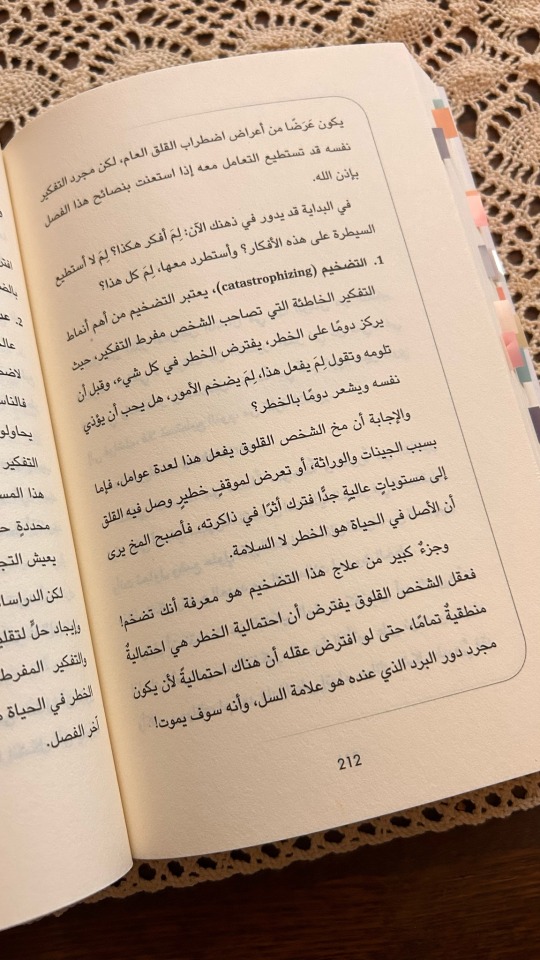 يكون عَرَضًا من أعراض اضطراب القلق العام، لكن مجرد التفكير
نفسه قد تستطيع التعامل معه إذا استعنت بنصائح هذا الفصل
بإذن الله.
في البداية قد يدور في ذهنك الآن: لِمَ أفكر هكذا؟ لِمَ لا أستطيع
السيطرة على هذه الأفكار؟ وأستطرد معها، لِمَ كل هذا؟
1. التضخيم (catastrophizing)، يعتبر التضخيم من أهم أنماط
التفكير الخاطئة التي تصاحب الشخص مفرط التفكير، حيث
يركز دومًا على الخطر، يفترض الخطر في كل شيء، وقبل أن
تلومه وتقول لِمَ يفعل هذا، لِمَ يضخم الأمور، هل يحب أن يؤذي
نفسه ويشعر دومًا بالخطر؟
والإجابة أن مخ الشخص القلوق يفعل هذا لعدة عوامل، فإما
بسبب الجينات والوراثة، أو تعرض لموقفٍ خطيرٍ وصل فيه القلق
إلى مستوياتٍ عاليةٍ جدًّا فترك أثرًا في ذاكرته، فأصبح المخ يرى
أن الأصل في الحياة هو الخطر لا السلامة.
وجزءٌ كبير من علاج هذا التضخيم هو معرفة أنك تضخم!
فعقل الشخص القلوق يفترض أن احتمالية الخطر هي احتماليةٌ
منطقيةٌ تمامًا، حتى لو افترض عقله أن هناك احتماليةً لأن يكون
مجرد دور البرد الذي عنده هو علامة السل، وأنه سوف يموت!
212
2.
فالناس
يحاولو
التفكير
هذا المس
محددةٍ
يعيش التج
لكن الدراسا
وإيجاد حلٍّ لتقلي
والتفكير المفرط
الخطر في الحياة
آخر الفصل.